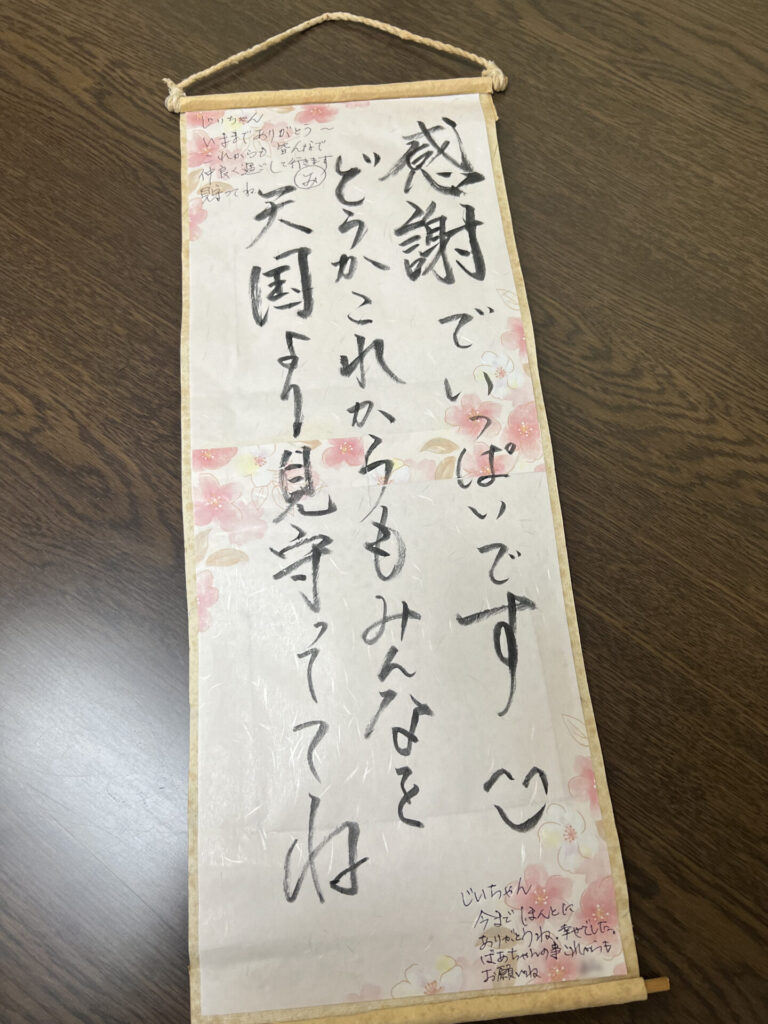 感謝でいっぱいです
どうかこれからもみんなを
天国より見守っててね
じいちゃん
いままでありがとう〜
これからも、皆んなで
仲良く過ごして行きます
見守ってね
み
じいちゃん
今までほんとに
ありがとうね、幸せでした。
ばあちゃんの事これからも
お願いね